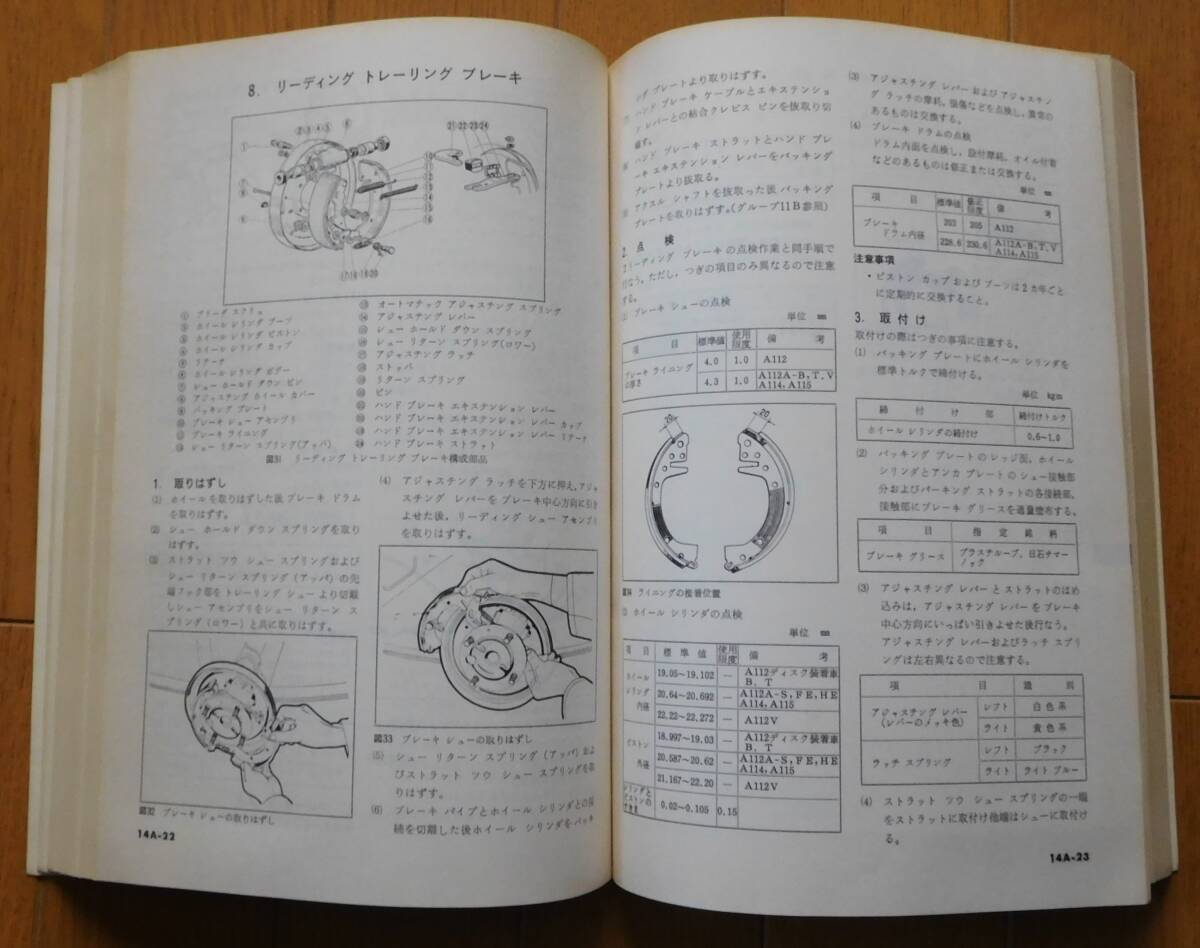 8. リーディング トレーリング ブレーキ
① ブリーダ スクリュ
② ホイール シリンダ ブーツ
③ ホイール シリンダ ピストン
④ ホイール シリンダ カップ
⑥ ホイール シリンダ ボデー
⑦ シュー ホールド ダウン ピン
⑧ アジャスチング ホイール カバー
⑨ バッキング プレート
⑩ ブレーキ シュー アセンブリ
⑪ ブレーキ ライニング
⑫ シュー リターン スプリング(アッパ)
⑬ オートマチック アジャスチング スプリング
⑭ アジャスチング レバー
⑮ シュー ホールド ダウン スプリング
⑯ シュー リターン スプリング(ロワー)
⑰ アジャスチング ラッチ
⑱ ストッパ
⑲ リターン スプリング
⑳ ピン
㉑ ハンド ブレーキ エキステンション レバー
㉒ ハンド ブレーキ エキステンション レバー カップ
㉓ ハンド ブレーキ エキステンション レバー リテーナ
㉔ ハンド ブレーキ ストラット
図31 リーディング トレーリング ブレーキ構成部品
1. 取りはずし
(1) ホイールを取りはずした後ブレーキ ドラム
を取りはずす。
(2) シュー ホールド ダウン スプリングを取り
はずす。
(3) ストラット ツウ シュー スプリングおよび
シュー リターン スプリング(アッパ)の先
端フック部をトレーリング シューより切離
しシュー アセンブリをシュー リターン ス
プリング(ロワー)と共に取りはずす。
図32 ブレーキ シューの取りはずし
14A-22
(4) アジャスチング ラッチを下方に抑え,アジャ
スチング レバーをブレーキ中心方向に引き
よせた後,リーディング シュー アセンブリ
を取りはずす。
図33 ブレーキ シューの取りはずし
(5) シュー リターン スプリング(アッパ)およ
びストラット ツウ シュー スプリングを取
りはずす。
(6) ブレーキ パイプとホイール シリンダとの接
続を切離した後ホイール シリンダをバッキ
ング プレートより取りはずす。
ハンド ブレーキ ケーブルとエキステンショ
ン レバーとの結合クレビス ピンを抜取り切
離す。
ハンド ブレーキ ストラットとハンド ブレ
ーキ エキステンション レバーをバッキング
プレートより抜取る。
アクスル シャフトを抜取った後バッキング
プレートを取りはずす。(グループ11B参照)
2. 点 検
2リーディング ブレーキの点検作業と同手順で
行なう。ただし,つぎの項目のみ異なるので注意
する。
ブレーキ シューの点検
単位 mm
項 目 標準値 使用限度 備 考
ブレーキ ライニングの厚さ 4.0 1.0 A112
4.3 1.0 A112A-B, T, V
A114, A115
20 20
図34 ライニングの接着位置
ホイール シリンダの点検
単位 mm
項目 標 準 値 使用限度 備 考
ホイール シリンダ 内径 19.05~19.102 — A112ディスク装着車
B, T
20.64~20.692 — A112A-S, FE, HE
A114, A115
22.22~22.272 — A112V
ピストン 外径 18.997~19.03 — A112ディスク装着車
B, T
20.587~20.62 — A112A-S, FE, HE
A114, A115
21.167~22.20 — A112V
シリンダとピストンのすきま 0.02~0.105 0.15
(3) アジャスチング レバーおよびアジャスチン
グ ラッチの摩耗,損傷などを点検し,異常の
あるものは交換する。
(4) ブレーキ ドラムの点検
ドラム内面を点検し,段付摩耗,オイル付着
などのあるものは修正または交換する。
単位 mm
項 目 標準値 修正限度 備 考
ブレーキ ドラム内径 203 205 A112
228.6 230.6 A112A-B, T, V
A114, A115
注意事項
・ピストン カップおよびブーツは2カ年ごと
に定期的に交換すること。
3. 取付け
取付けの際はつぎの事項に注意する。
(1) バッキング プレートにホイール シリンダを
標準トルクで締付ける。
単位 kgm
締 付 け 部 締付けトルク
ホイール シリンダの締付け 0.6~1.0
(2) バッキング プレートのレッジ面,ホイール
シリンダとアンカ プレートのシュー接触部
分およびパーキング ストラットの各接続部,
接触部にブレーキ グリースを適量塗布する。
項 目 指 定 銘 柄
ブレーキ グリース プラステルーブ,日石サマー
ノック
(3) アジャスチング レバーとストラットのはめ
込みは,アジャスチング レバーをブレーキ
中心方向にいっぱい引きよせた後行なう。
アジャスチング レバーおよびラッチ スプリ
ングは左右異なるので注意する。
項 目 識 別
アジャスチング レバー
(レバーのメッキ色) レフト 白色系
ライト 黄色系
ラッチ スプリング レフト ブラック
ライト ライト ブルー
(4) ストラット ツウ シュー スプリングの一端
をストラットに取付け他端はシューに取付け
る。
14A-23